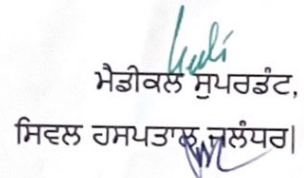 ਮੈਡੀਕਲ ਸੁਪਰਡੰਟ,
ਸਿਵਲ ਹਸਪਤਾਲ, ਜਲੰਧਰ|